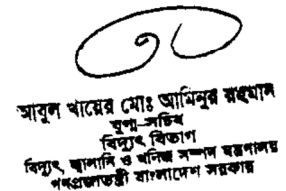 আবুল খায়ের মোঃ আমিনুর রহমান
যুগ্ম-সচিব
বিদ্যুৎ বিভাগ
বিদ্যুৎ, জ্বালানি ও খনিজ সম্পদ মন্ত্রণালয়
গণপ্রজাতন্ত্রী বাংলাদেশ সরকার